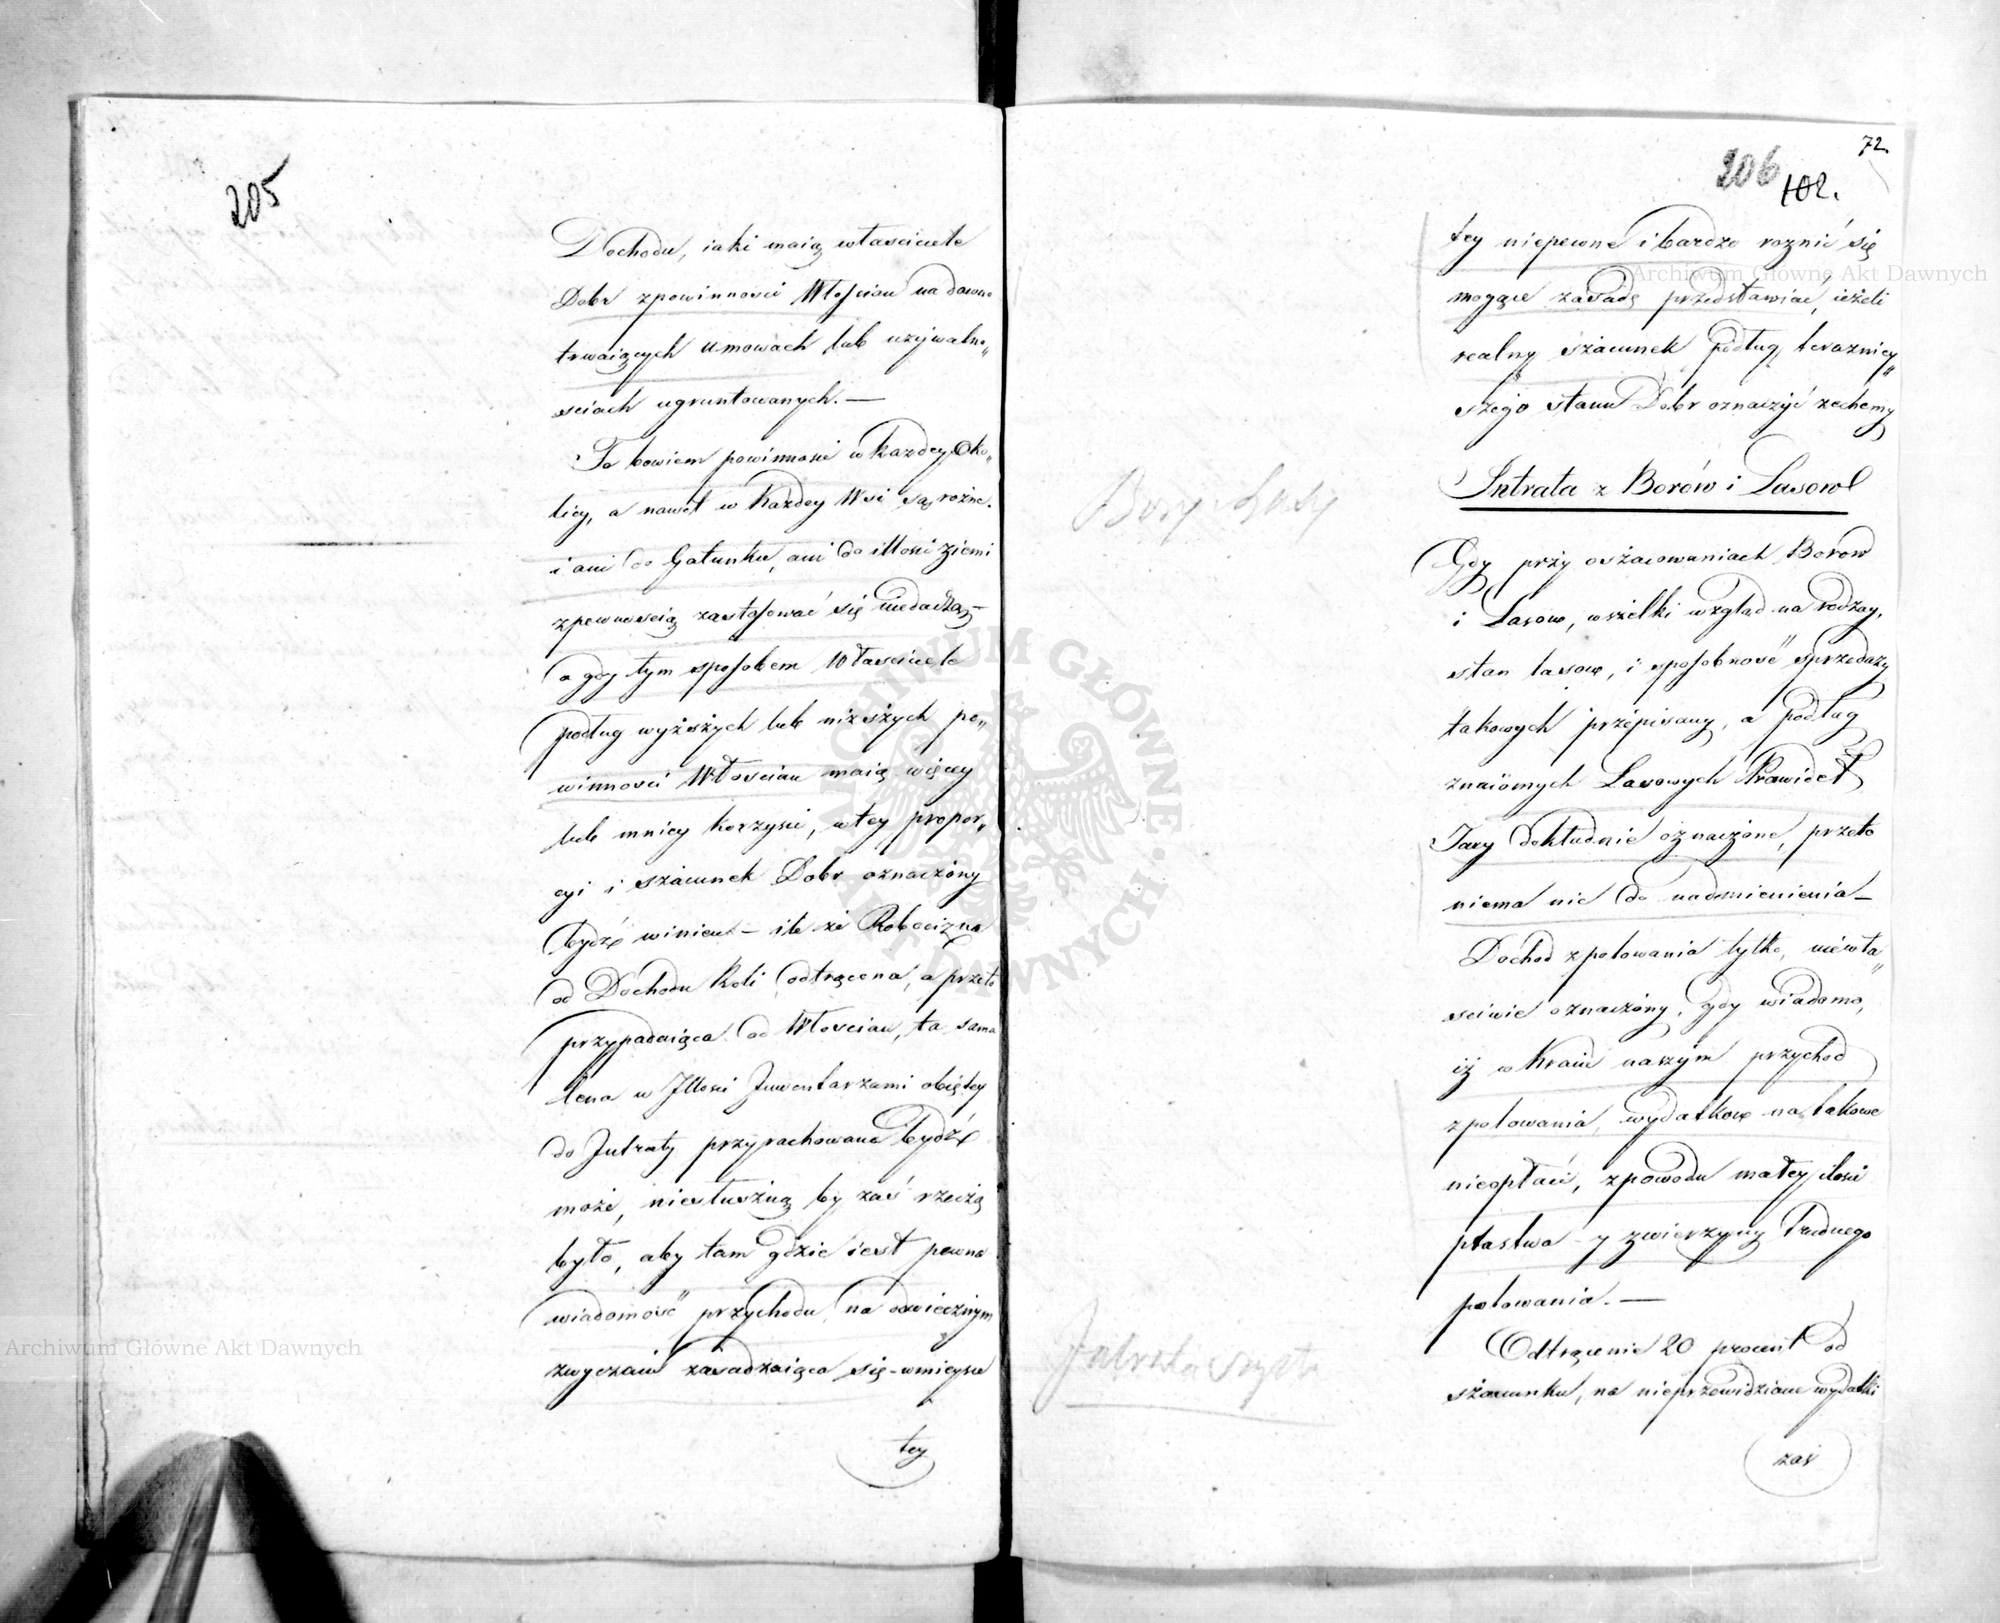 205
Dochodu, iaki maią własciciele
Dobr z powinnosci Włoscian na dawno
trwaiących umowach lub uzywalno„
sciach ugruntowanych.—
Te bowiem powinnosci w kazdey Oko„
licy, a nawet w kazdey Wsi są rożne.
i ani do Gatunku, ani do illosci ziemi
z pewnoscią zastosować się niedadzą—
a gdy tym sposobem Własciciele
podług wyższych lub niższych po„
winnosci Włoscian maią więcey
lub mniey korzysci, w tey propor„
cyi i szacunek Dobr oznaczony
bydź winien— ile że Robocizna
od Dochodu Roli odtrącona, a przeto
przypadaiąca od Włoscian, ta sama
Cena w Jllosci Jnwentarzami obiętey
do Jntraty przyrachowana bydź
może, niesłuszną by zaś rzeczą
było, aby tam gdzie iest pewna
wiadomość przychodu, na odwiecznym
zwyczaiu zasadzaiąca się— w mieysce
tey
72.
206
102.
tey niepewne i bardzo roznić się
mogące zasadę przedstawiać, ieżeli
realny szacunek podług terazniey„
szego stanu Dobr oznaczyć zechcemy
Intrata z Borów i Lasow
Bory Lasy
Gdy przy oszacowaniach Borow
i Lasow, wszelki wzgląd na rodzay,
stan lasow, i sposobność sprzedaży
takowych przepisany, a podług
znaiomych Lasowych Prawideł
Taxy dokładnie oznaczone, przeto
niema nic do nadmienienia—
Dochod z polowania tylko, niewła„
sciwie oznaczony, gdy wiadomo,
iż w Kraiu naszym przychod
z polowania, wydatkow na takowe
nieopłaci, z powodu małey ilosci
ptastwa y zwierzyny trudnego
polowania.—
Jntrata czysta
Odtrącenie 20 procent od
szacunku, na nieprzewidziane wydatki
zaś
Archiwum Główne Akt Dawnych
Archiwum Główne Akt Dawnych
ARCHIWUM GŁÓWNE AKT DAWNYCH